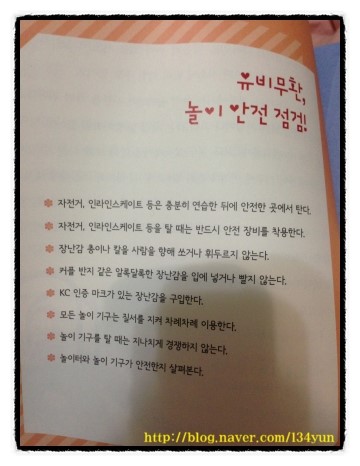 유비무환,
놀이 안전 점검!
자전거, 인라인스케이트 등은 충분히 연습한 뒤에 안전한 곳에서 탄다.
자전거, 인라인스케이트 등을 탈 때는 반드시 안전 장비를 착용한다.
장난감 총이나 칼을 사람을 향해 쏘거나 휘두르지 않는다.
커플 반지 같은 알록달록한 장난감을 입에 넣거나 빨지 않는다.
KC 인증 마크가 있는 장난감을 구입한다.
모든 놀이 기구는 질서를 지켜 차례차례 이용한다.
놀이 기구를 탈 때는 지나치게 경쟁하지 않는다.
놀이터와 놀이 기구가 안전한지 살펴본다.
http://blog.naver.com/l34yun